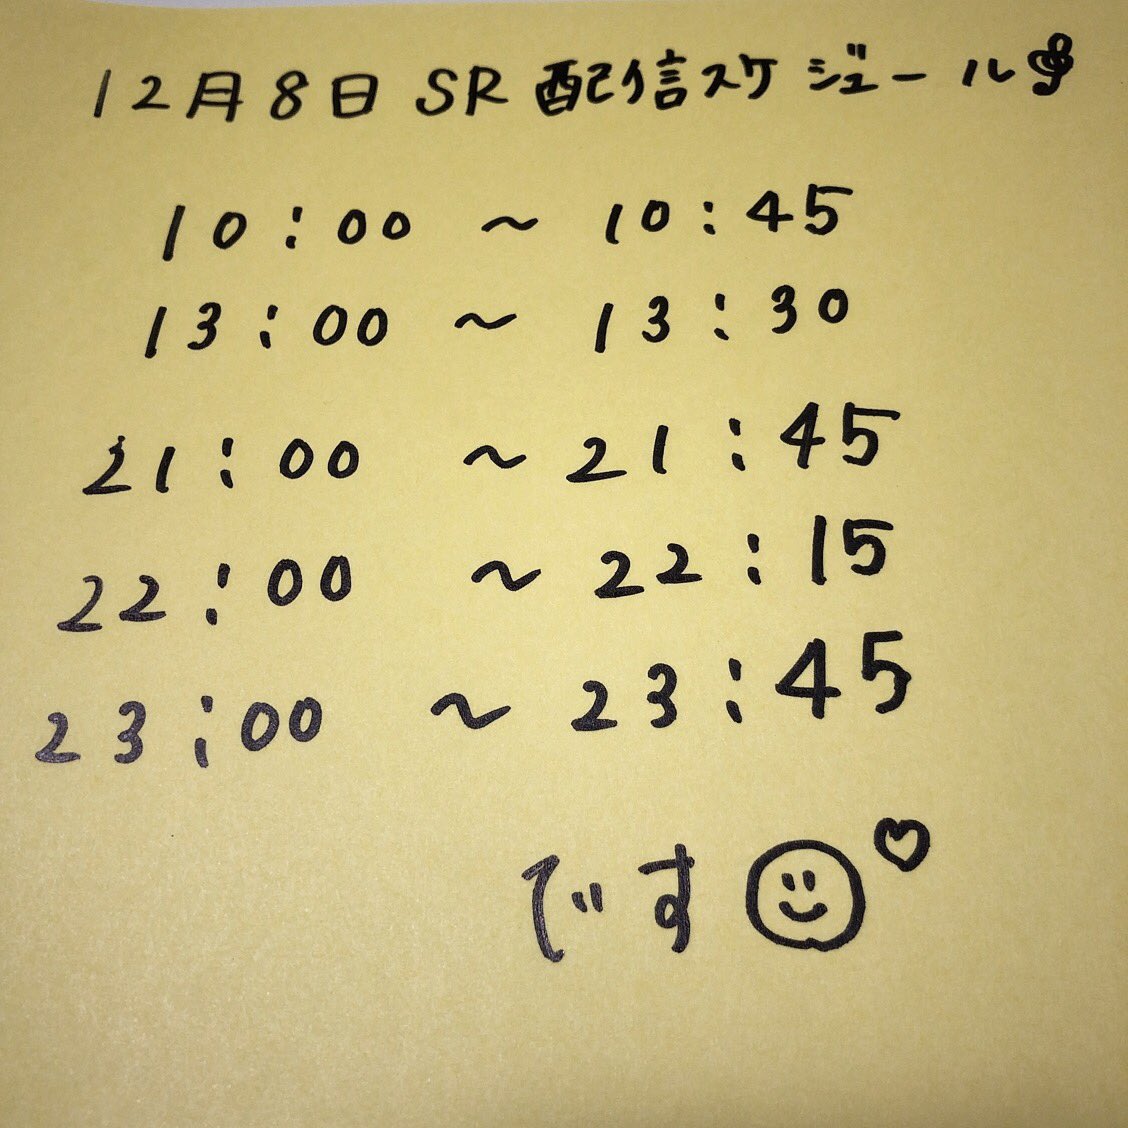 12月8日 SR 配信スケジュール
10:00 ～ 10:45
13:00 ～ 13:30
21:00 ～ 21:45
22:00 ～ 22:15
23:00 ～ 23:45
です